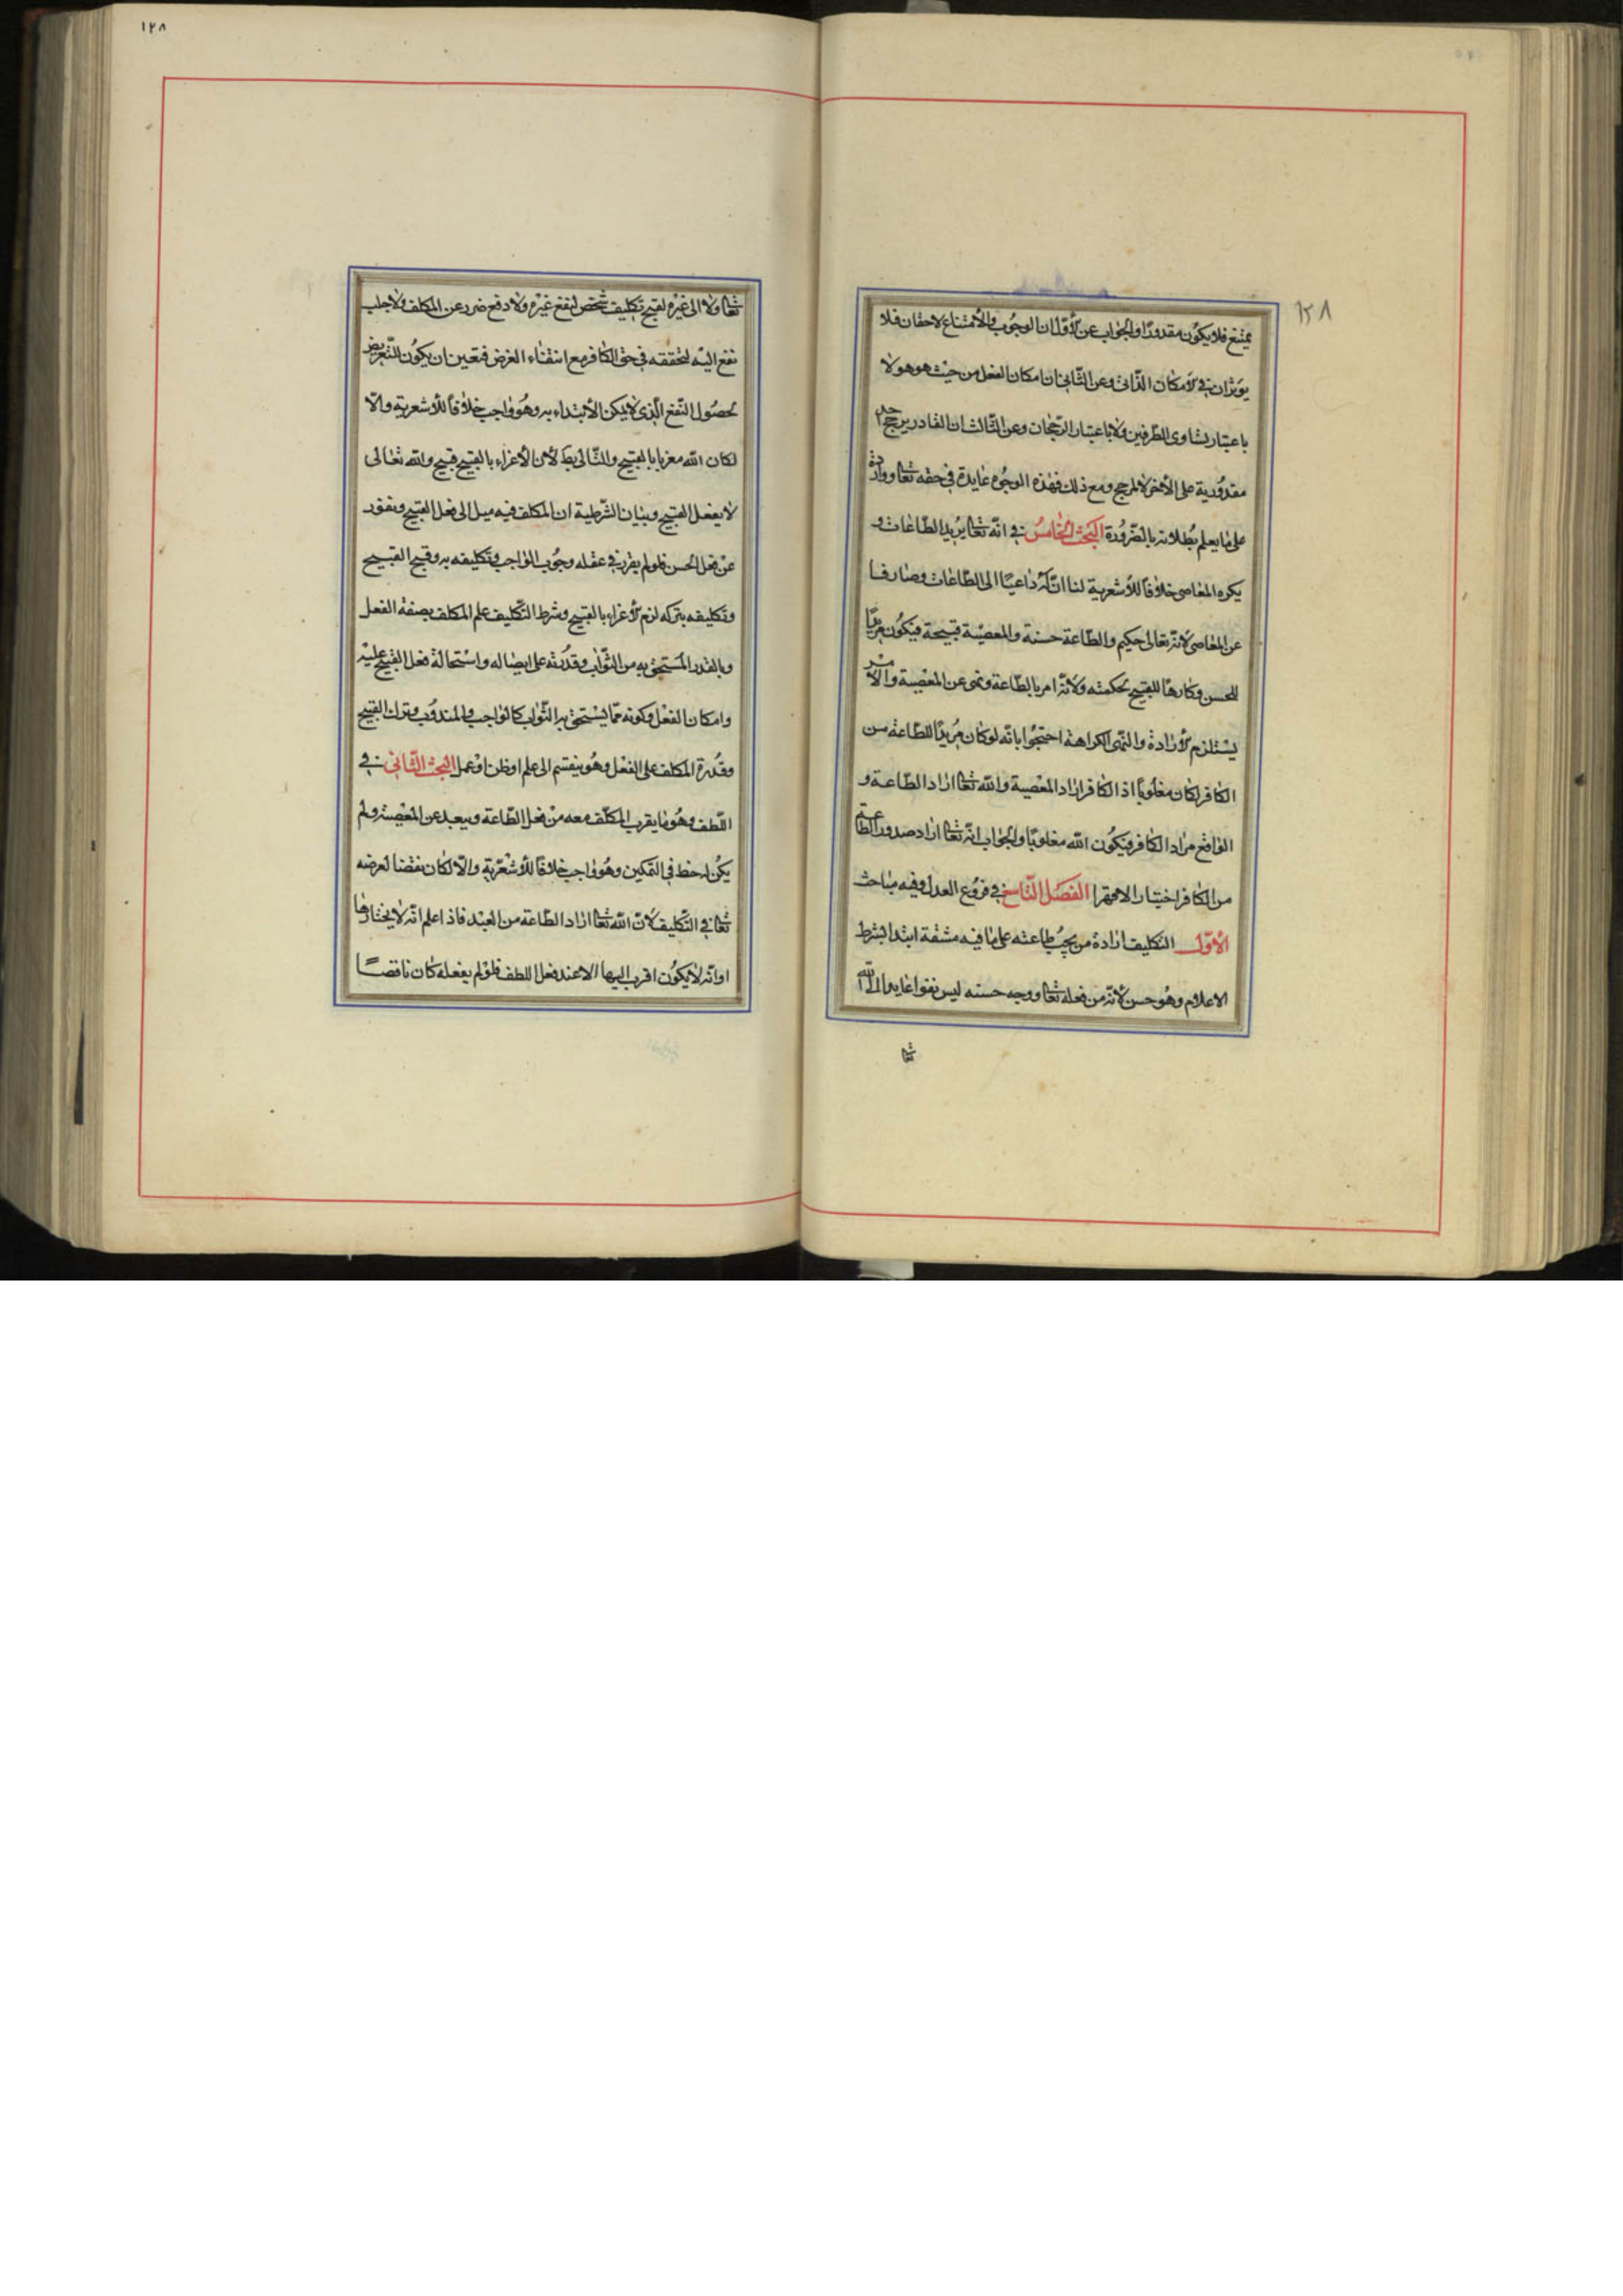 ١٢٨
١٢٨
يمتنع فلا يكون مقدورا والجواب عن الأول ان الوجوب والأمتناع لاحقان فلا
يؤثران في الأمكان الذاتي وعن الثاني ان امكان الفعل من حيث هو هو لا
باعتبار تساوى الطرفين ولا باعتبار الرجحان وعن الثالث ان القادر يرجح احد
مقدوريه على الأخر لا لمرجح ومع ذلك فهذه الوجوه عايدة في حقه تعا وواردة
على ما يعلم بطلانه بالضرورة البحث الخامس في انه تعا يريد الطاعات و
يكره المعاصى خلافا للأشعرية لنا ان له داعيا الى الطاعات وصارفا
عن المعاصى لأنه تعالى حكيم والطاعة حسنة والمعصية قبيحة فيكون مريدا
للحسن وكارها للقبيح بحكمته ولأنه امر بالطاعة ونهى عن المعصية والأمر
يستلزم الأرادة والنهى الكراهة احتجوا بانه لو كان مريدا للطاعة من
الكافر لكان مغلوبا اذ الكافر اراد المعصية والله تعا اراد الطاعة و
الواقع مراد الكافر فيكون الله مغلوبا والجواب انه تعا اراد صدور الطاعة
من الكافر اختيارا لا قهرا الفصل التاسع في فروع العدل وفيه مباحث
الأول التكليف ارادة من يجب طاعته على ما فيه مشقة ابتدا بشرط
الاعلام وهو حسن لأنه من فعله تعا ووجه حسنه ليس نفعا عايدا الى الله
تعا
تعا ولا الى غيره لقبح تكليف شخص لنفع غيره ولا دفع ضرر عن المكلف ولا جلب
نفع اليه لتحققه في حق الكافر مع انتفاء الغرض فتعين ان يكون للتعريض
لحصول النفع الذى لا يمكن الأبتداء به وهو واجب خلافا للأشعرية والا
لكان الله مغريا بالقبيح والتالى بط لأن الأغراء بالقبيح قبيح والله تعالى
لا يفعل القبيح وبيان الشرطية ان المكلف فيه ميل الى فعل القبيح ونفور
عن فعل الحسن فلو لم يقرر في عقله وجوب الواجب وتكليفه به وقبح القبيح
وتكليفه بتركه لزم الأغراء بالقبيح وشرط التكليف علم المكلف بصفة الفعل
وبالقدر المستحق به من الثواب وقدرته على ايصاله واستحالة فعل القبيح عليه
وامكان الفعل وكونه مما يستحق به الثواب كالواجب والمندوب وترك القبيح
وقدرة المكلف على الفعل وهو ينقسم الى علم او ظن او عمل البحث الثاني في
اللطف وهو ما يقرب المكلف معه من فعل الطاعة ويبعد عن المعصية ولم
يكن له حظ في التمكين وهو واجب خلافا للأشعرية والا لكان نقضا لغرضه
تعا في التكليف لأن الله تعا اراد الطاعة من العبد فاذا علم انه لا يختارها
او انه لا يكون اقرب اليها الا عند فعل اللطف فلو لم يفعله كان ناقصا